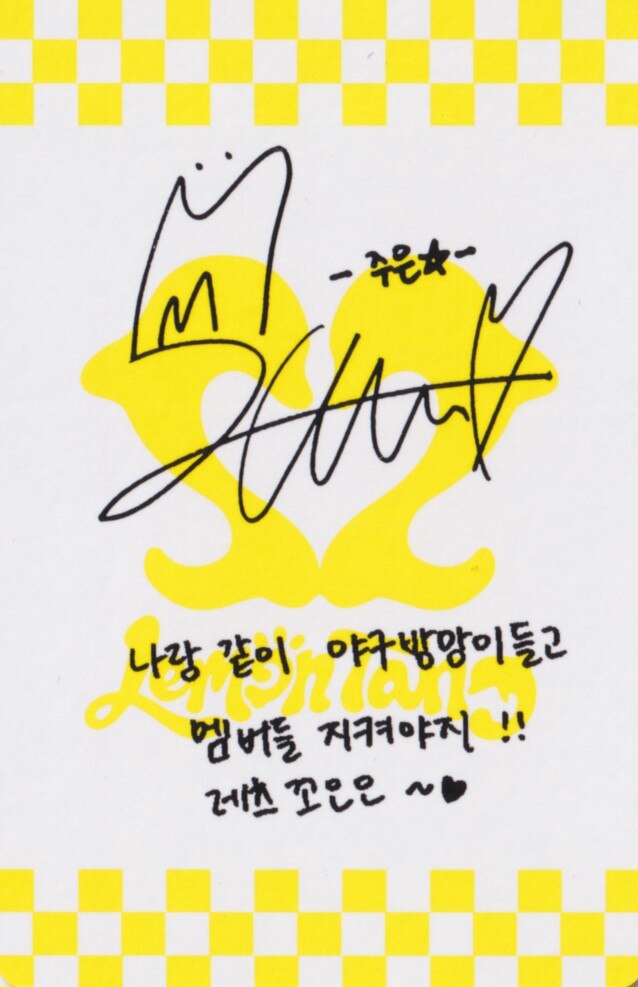 - 주은☆ -
Lemon Tang
나랑 같이 야구방망이들고
멤버들 지켜야지 !!
레츠 꼬은은 ~♥